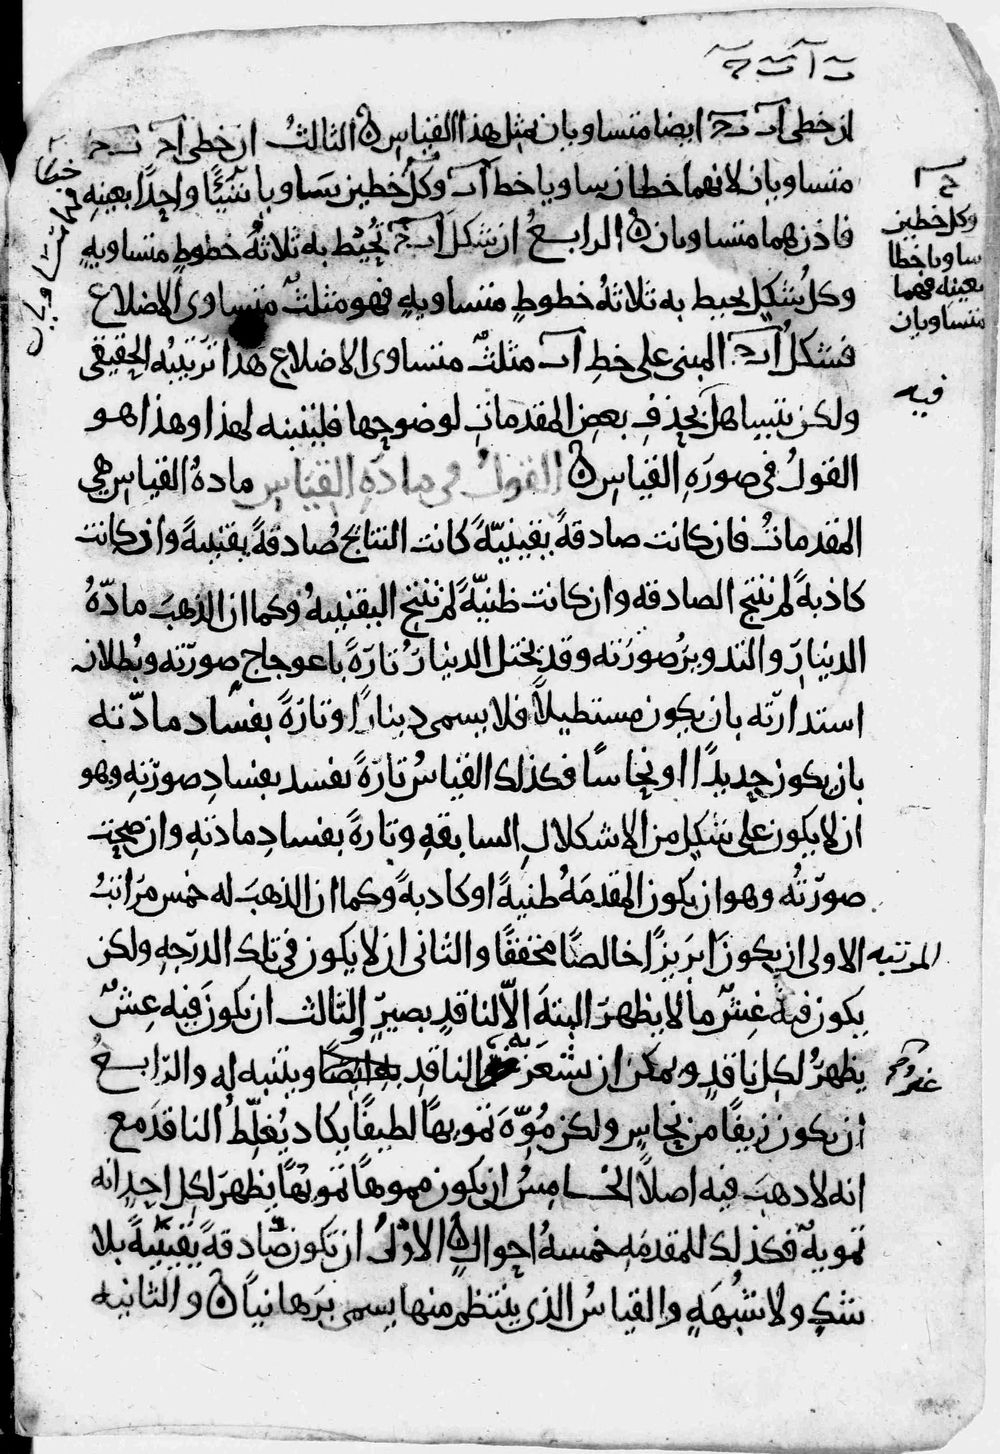 ان خطى اب بج ايضا متساويان بمثل هذا القياس ۞ الثالثُ ان خطى اج بج
متساويان لانهما خطان ساويا خط اب وكل خطين يساويا شيئًا واحدًا بعينه
فاذن هما متساويان ۞ الرابعُ ان شكل ابج تُحيط به ثلاثةُ خطوطٍ متساويهٍ
وكل شكلٍ يحيط به ثلاثهُ خطوطٍ متساويهٍ فهو مثلثٌ متساوى الاضلاع
فشكلُ ابج المبنى على خطِ اب مثلثٌ متساوى الاضلاع هذا ترتيبُه الحقيقى
ولكن يتساهل بحذفِ بعض المقدماتِ لوضوحها فليتنبه لهذا وهذا هو
القولُ فى صورَهِ القياس ۞ القولُ فى مادّهِ القياسِ مادهُ القياس هي
المقدماتُ فان كانت صادقهً يقينيّهً كانت النتائج صادقهً يقينيهً وان كانت
كاذبهً لم تنتج الصادقه وان كانت ظنيّهً لم تنتج اليقينيهُ وكما ان الذهبَ مادّهُ
الدينارَ والتدويرُ صورَته وقد يختل الدينارَ تارَهً باعوجاج صورَته وبُطلان
استدارَته بان يكون مستطيلاً فلا يسمى دينارًا وتارَهً بفساد مادّته
بان يكون حديدًا او نحاسًا فكذلك القياسُ تارَهً يفسد بفسادِ صورَتهِ وهو
ان لا يكون على شكلٍ من الاشكالِ السابقهِ وتارهً بفسادِ مادتهِ وان صحت
صورَتُه وهو ان يكون المقدمَهُ ظنيهً او كاذبهً وكما ان الذهبَ له خمس مرَاتبُ
المرَتبه الاولى ان يكونَ ابرَيزًا خالصًا محققًا والثانى ان لا يكون فى تلك الدرَجهِ ولكن
يكون فيه غِشٌ ما لا يظهرَ البتهَ الّا لناقدٍ بصيرٍ والثالث ان يكونَ فيه غِشٌ
يظهرُ لكل ناقدٍ ويمكن ان يشعرَ به غيرُ الناقدِ ايضًا ويتنبه له والرَابعُ
ان يكون زيفًا من نحاسٍ ولكن مُوِّهَ تمويهًا لطيفًا يكاد يُغلِّطُ الناقدَ مع
انه لا ذهبَ فيه اصلاً الخامسُ ان يكون مموهًا تمويهًا يظهرَ لكل احدٍ انه
تمويهٌ فكذلك للمقدمَهِ خمسهُ احوالٍ ۞ الاولىُ ان تكون صادقهً يقينيّهً بلا
شكٍ ولا شُبهَهٍ والقياسُ الذى ينتظم منها يسمى برَهانياً ۞ والثانيه
وكل خطين
ساويا خطا
بعينه فهما
متساويان
فيه